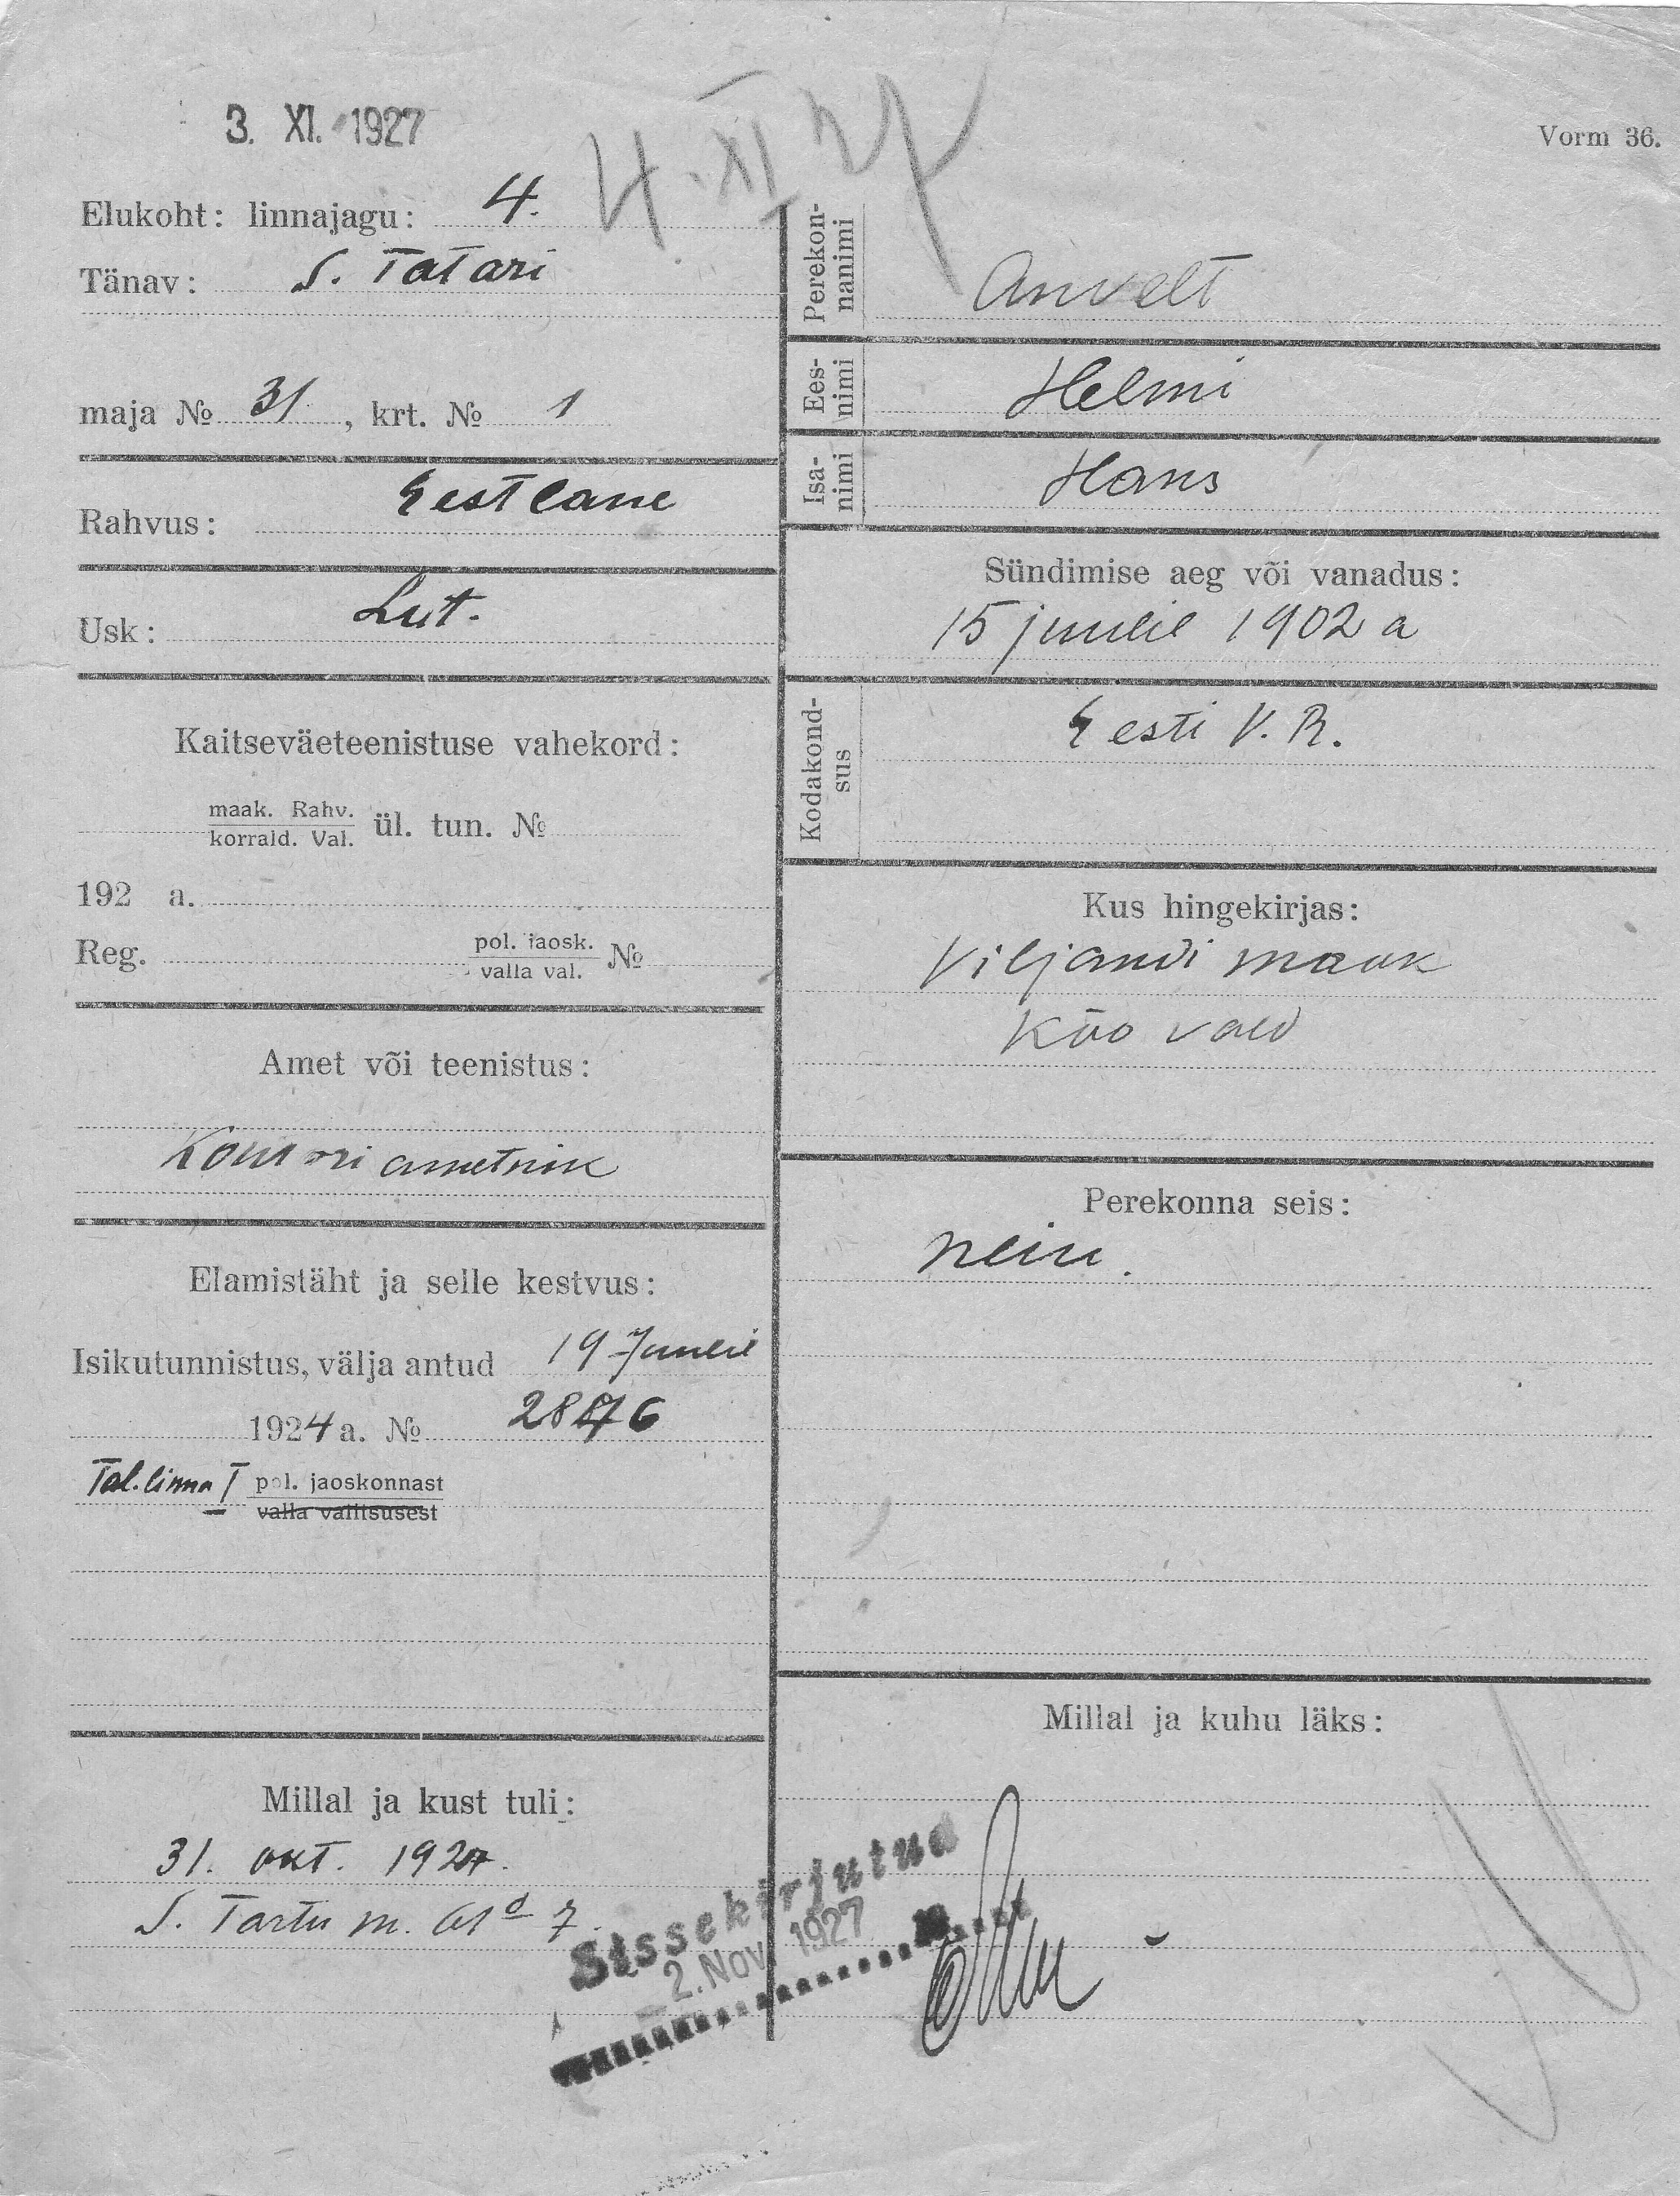 3. XI. 1927
4. XI 27
Vorm 36.
Elukoht: linnajagu: 4.
Tänav: S. Tatari
maja № 31, krt. № 1
Rahvus: Eestlane
Usk: Lut.
Kaitseväeteenistuse vahekord:
maak. Rahv.
korrald. Val. ül. tun. №
192 a.
Reg. pol. jaosk. №
valla val.
Amet või teenistus:
Kontori ametnik
Elamistäht ja selle kestvus:
Isikutunnistus, välja antud 19 Juulil
1924 a. №
Tal.linna I pol. jaoskonnast
valla vallitsusest
Millal ja kust tuli:
31. okt. 1927.
S. Tartu m. 7.
Perekon-
nanimi Anvelt
Ees-
nimi Helmi
Isa-
nimi Hans
Sündimise aeg või vanadus:
15 juulil 1902 a
Kodakond-
sus Eesti V. R.
Kus hingekirjas:
Viljandi maak
Kõo vald
Perekonna seis:
neiu.
Millal ja kuhu läks:
Sissekirjutud
2. Nov. 1927